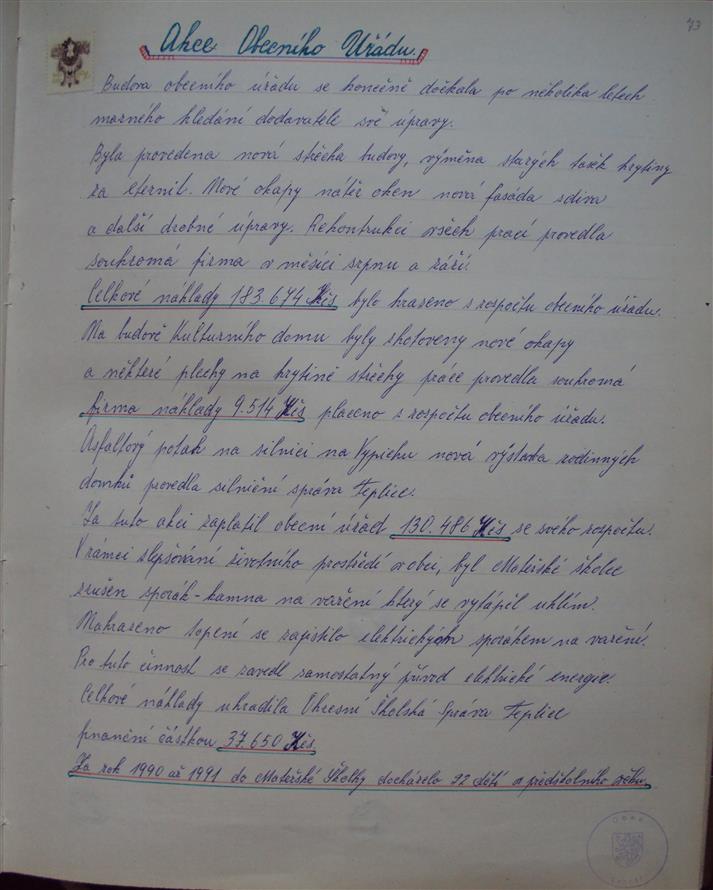 73
Akce Obecního Úřadu.
Budova obecního úřadu se konečně dočkala po několika letech
marného hledání dodavatele své úpravy.
Byla provedena nová střecha budovy, výměna starých tašek krytiny
za eternit. Nové okapy nátěr oken nová fasáda zdiva
a další drobné úpravy. Rekontrukci všech prací provedla
soukromá firma v měsíci srpnu a září.
Celkové náklady 183.674 Kčs bylo hrazeno z rozpočtu obecního úřadu.
Na budově Kulturního domu byly zhotoveny nové okapy
a některé plechy na krytině střechy práce provedla soukromá
firma náklady 9.514 Kčs placeno z rozpočtu obecního úřadu.
Asfaltový potah na silnici na Vypichu nová výstavba rodinných
domků provedla silniční správa Teplice.
Za tuto akci zaplatil obecní úřad 130.486 Kčs ze svého rozpočtu.
V rámci zlepšování životního prostředí v obci, byl Mateřské školce
zrušen sporák-kamna na vaření který se vytápěl uhlím.
Nahrazeno topení se zajistilo elektrickým sporákem na vaření.
Pro tuto činnost se zavedl samostatný přívod elektrické energie.
Celkové náklady uhradila Okresní Školská Správa Teplice
finanční částkou 37.650 Kčs
Za rok 1990 až 1991 do Mateřské Školky docházelo 22 dětí v předškolního věku.